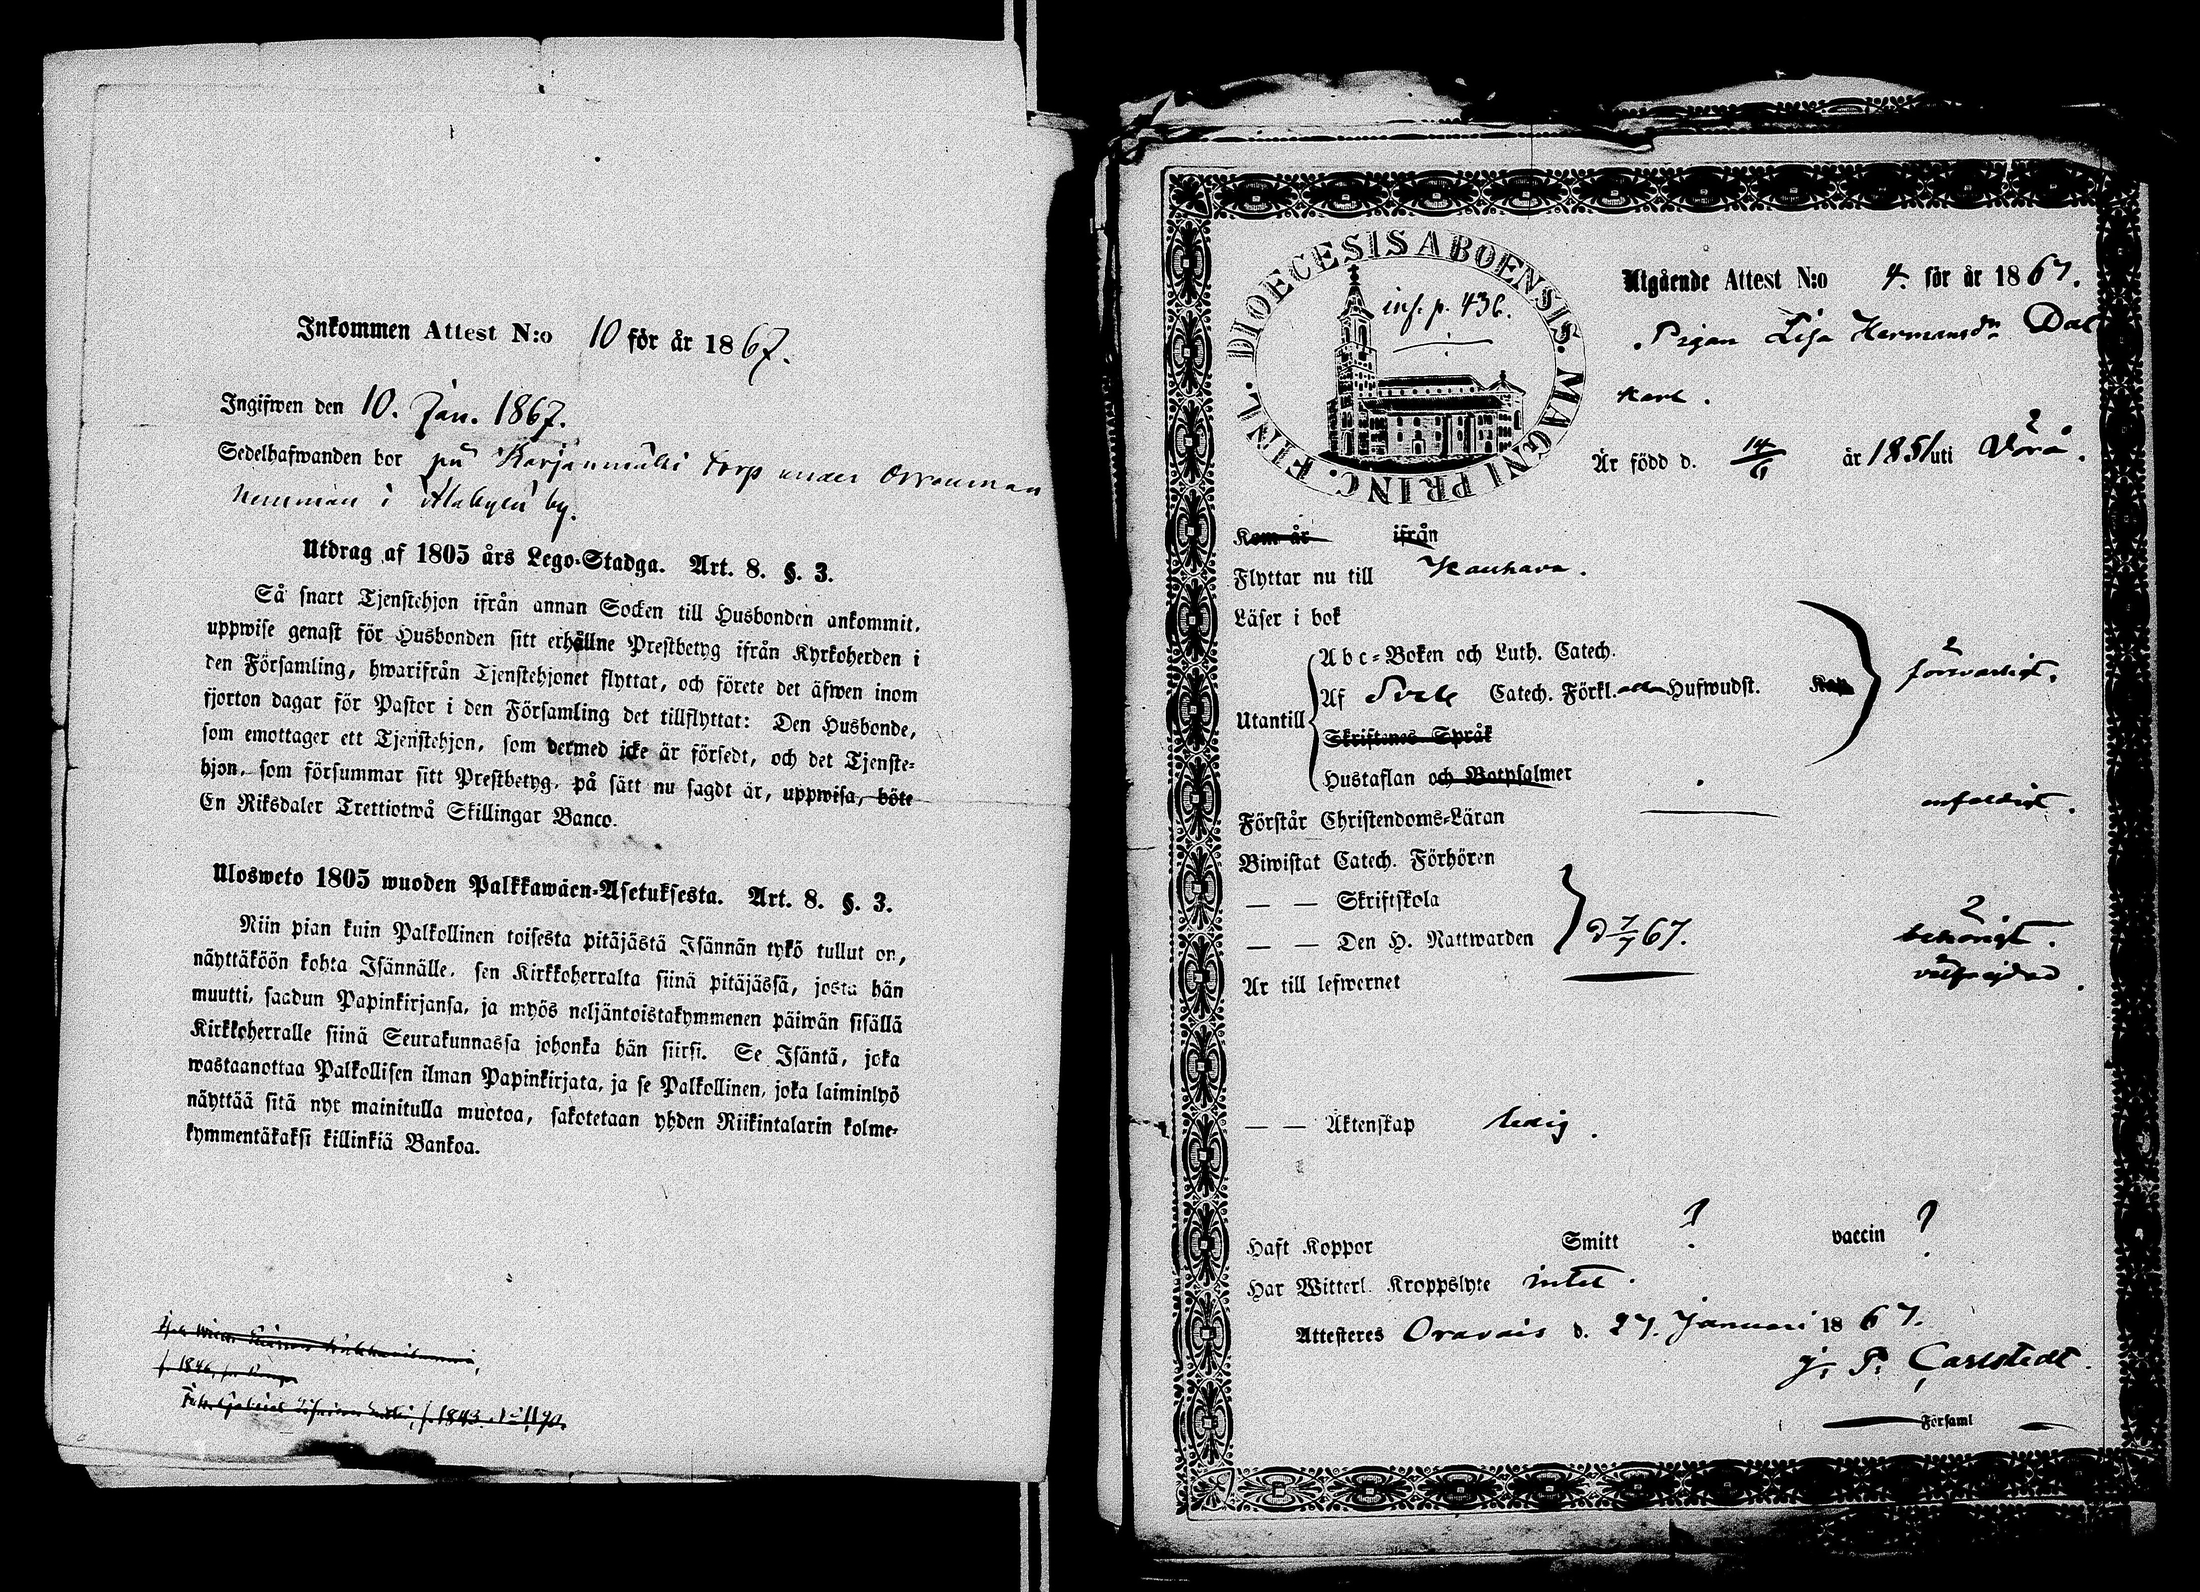 Inkommen Attest N:o 10 för år 1867.
Ingifwen den 10. Jan. 1867.
Sedelhafwanden bor på Karjanmäki torp under
i Alakylä by.
Utdrag af 1805 års Lego-Stadga. Art. 8. §. 3.
Så snart Tjenstehjon ifrån annan Socken till Husbonden ankommit,
uppwise genast för Husbonden sitt erhållne Prestbetyg ifrån Kyrkoherden i
den Församling, hwarifrån Tjenstehjonet flyttat, och förete det äfwen inom
fjorton dagar för Pastor i den Församling det tillflyttat: Den Husbonde,
som emottager ett Tjenstehjon, som dermed icke är försedt, och det Tjenste-
hjon, som försummar sitt Prestbetyg, på sätt nu sagdt är, uppwisa, böte
En Riksdaler Trettiotwå Skillingar Banco.
Ulosweto 1805 wuoden Palkkawäen-Asetuksesta. Art. 8. §. 3.
Niin pian kuin Palkollinen toisesta pitäjästä Isännän tykö tullut on,
näyttäköön kohta Isännälle, sen Kirkkoherralta siinä pitäjässä, josta hän
muutti, saadun Papinkirjansa, ja myös neljäntoistakymmenen päiwän sisällä
Kirkkoherralle siinä Seurakunnassa johonka hän siirsi. Se Isäntä, joka
wastaanottaa Palkollisen ilman Papinkirjata, ja se Palkollinen, joka laiminlyö
näyttää sitä nyt mainitulla muotoa, sakotetaan yhden Riikintalarin kolme-
kymmentäkaksi killinkiä Bankoa.
f. 1846,
f. 1843.
DIOECESIS ABOENSIS. MAGNI PRINC. FINL.
inf. p. 436.
Utgående Attest N:o 4. för år 1867.
Pigan Lisa Hermansdr Dal
karl.
Är född d. 14/6 år 1851 uti Vörå.
Kom år ifrån
Flyttar nu till Kauhava.
Läser i bok
Abc-Boken och Luth. Catech.
Af Svebe Catech. Förkl. Hufwudst.
försvarligt.
Utantill
Skriftenes Språk
Hustaflan och Botpsalmer
Förstår Christendoms-Läran enfaldigt.
Biwistat Catech. Förhören
— — Skriftskola
— — Den H. Nattwarden d 7/7 67. behörigt.
Är till lefwernet välfrejdad.
— — Äktenskap ledig.
Haft Koppor Smitt ? vaccin ?
Har Witterl. Kroppslyte intet.
Attesteres Oravais d. 27. Januari 1867.
J. P. Carlstedt.
Församl